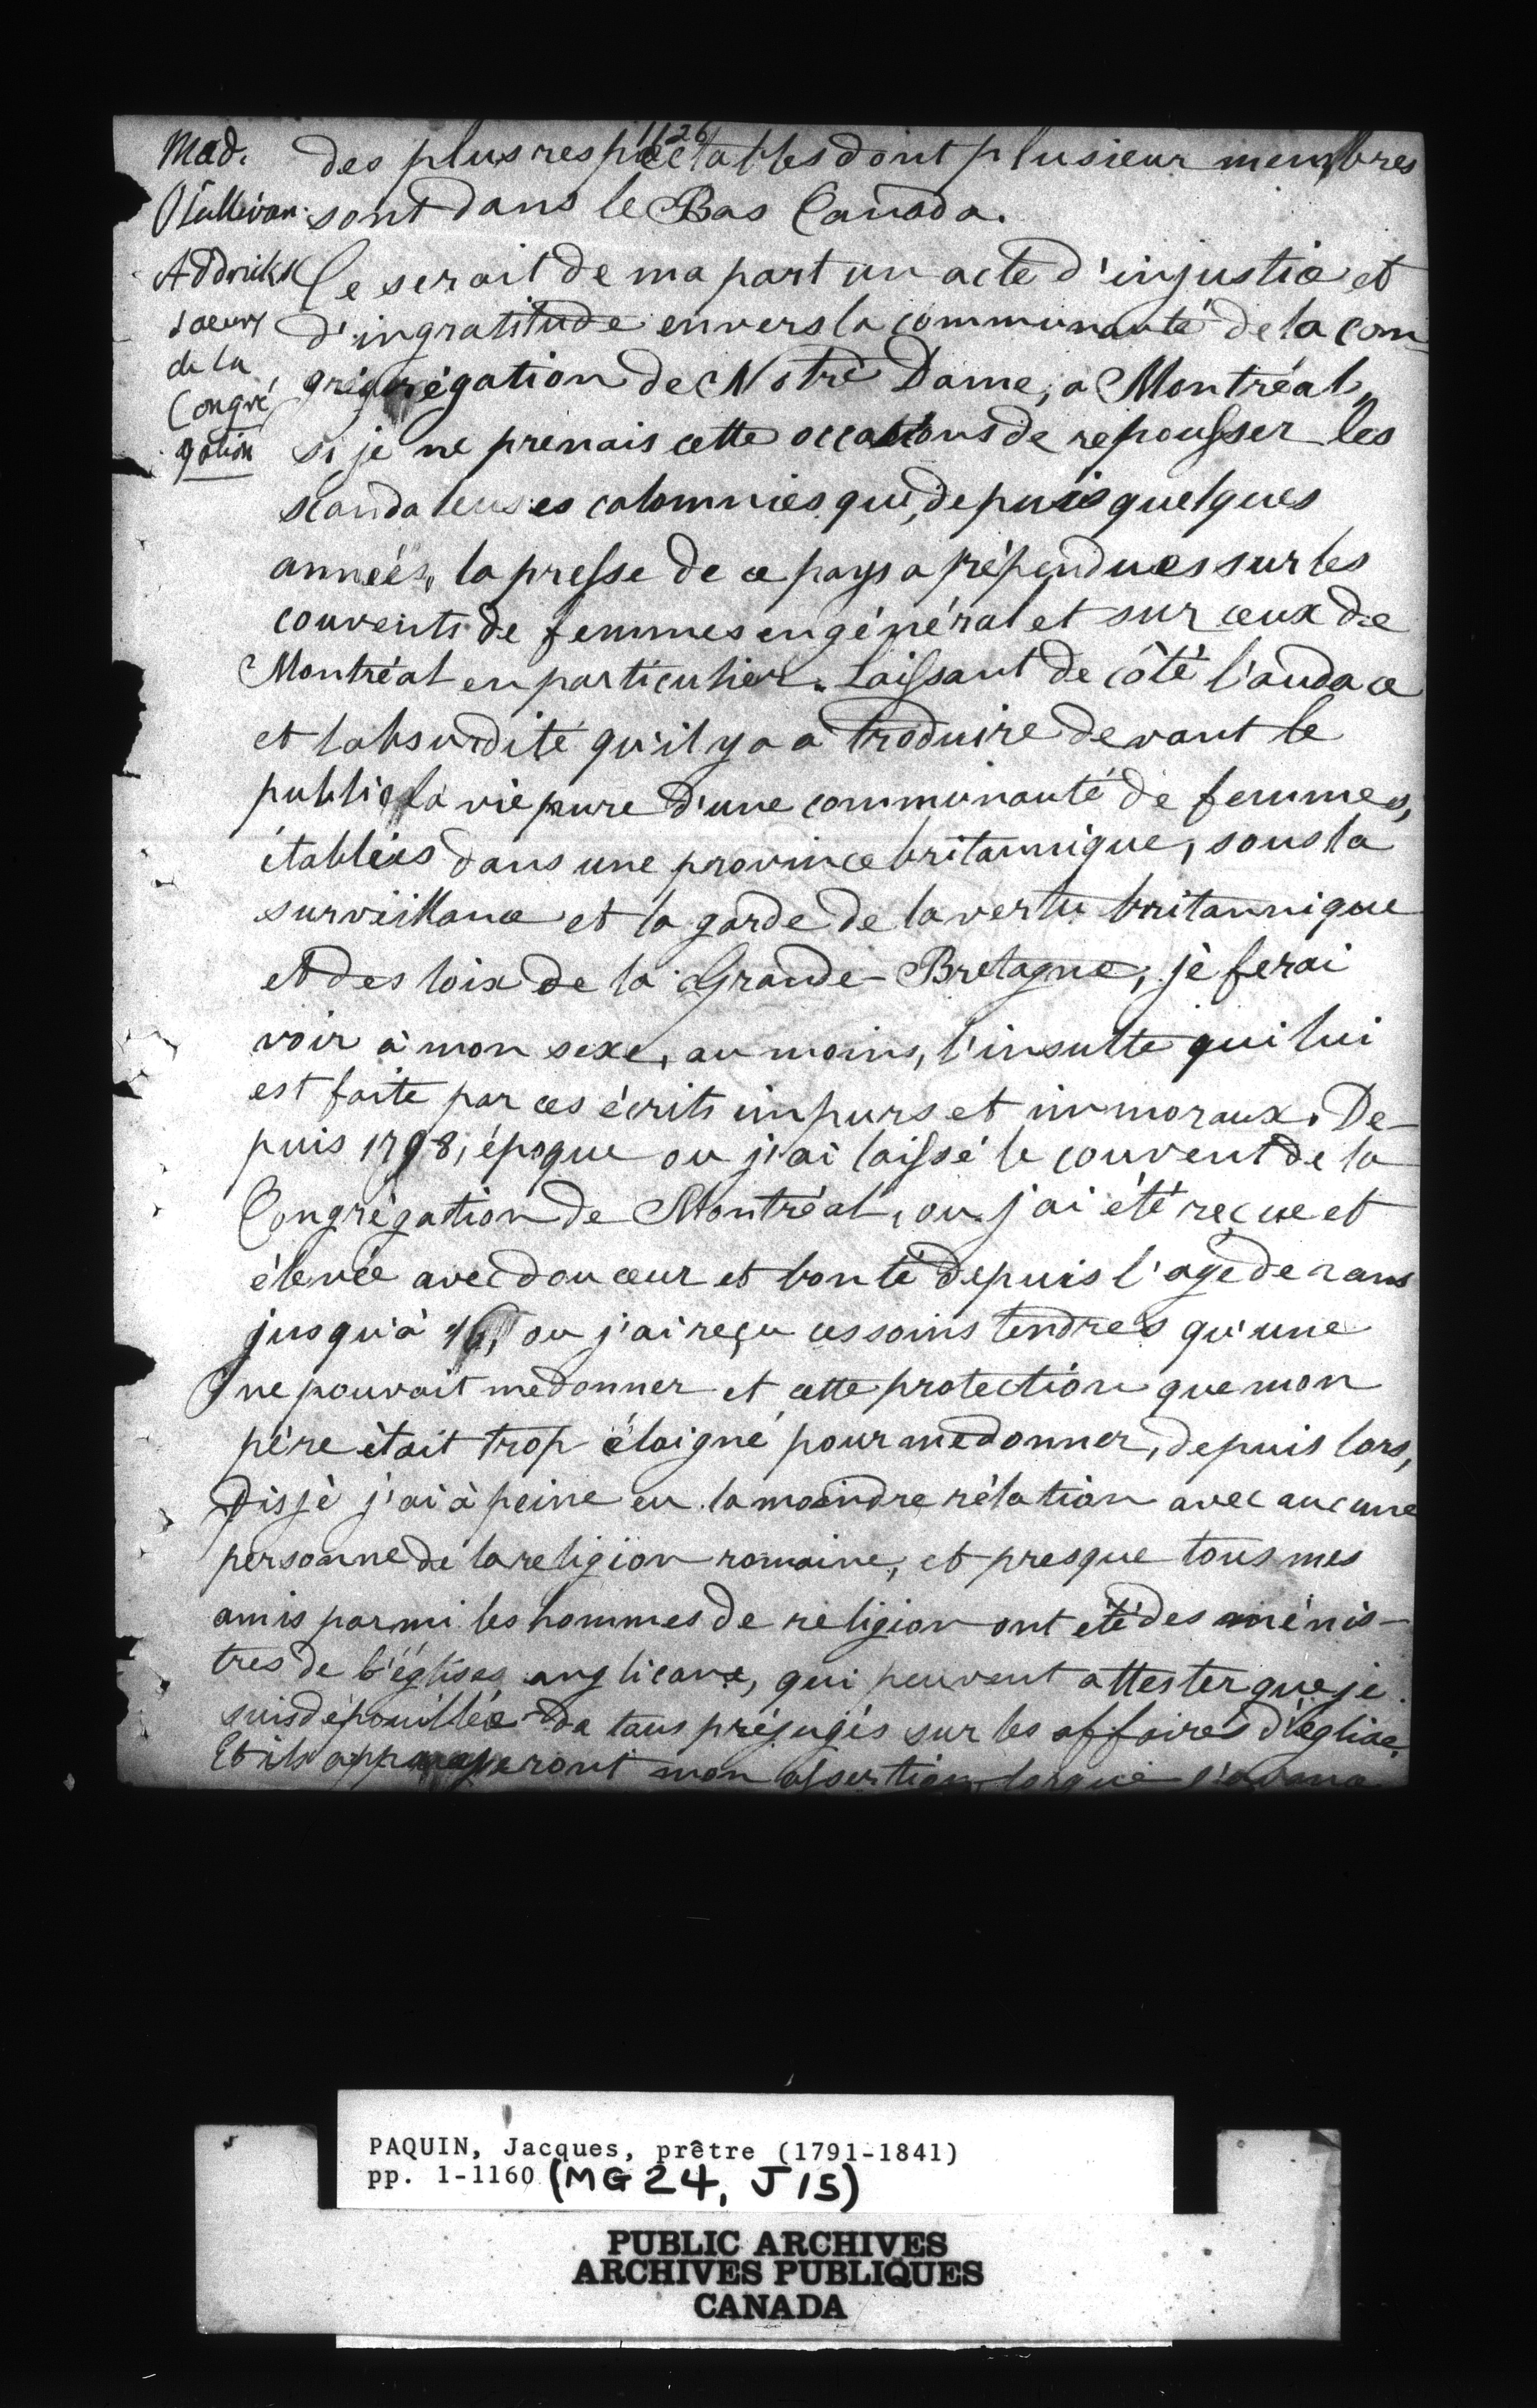 1126
Mad.
O Sullivan
Addricks
saeurs
de la
Congré
gation
des plus respectables dont plusieur membres
sont dans le Bas Canada.
Ce serait de ma part un acte d'injustice et
d'ingratitude envers la communauté de la con-
grégation de Notre Dame, a Montréal,
si je ne prenais cette occasions de repousser les
scandaleuses calomnies que, depuis quelques
années, la presse de ce pays a répendues sur les
couvents de femmes en général et sur ceux de
Montréal en particulier. Laissant de côté l'audace
et l'absurdité qu'il y a a traduire devant le
public la vie pure d'une communauté de femmes,
établies dans une province britannique, sous la
surveillance et la garde de la vertu britannique
et des loix de la Grande-Bretagne, je ferai
voir à mon sexe, au moins, l'insulte qui lui
est faite par ces écrits impurs et immoraux. De-
puis 1798, époque ou j'ai laissé le couvent de la
Congrégation de Montréal, ou j'ai été reçue et
élevée avec douceur et bonté depuis l'age de 2 ans
jusqu'à 16, ou j'ai reçu ces soins tendres qu'une
ne pouvait me donner et cette protection que mon
père était trop éloigné pour me donner, depuis lors,
dis je j'ai à peine eu la moindre rélation avec aucune
personne de la religion romaine, et presque tous mes
amis parmi les hommes de religion ont eté des minis-
tres de l'églises anglicane, qui peuvent attester que je
suis dépouillée de tous préjugés sur les affaires d'église.
Et ils appuyeront mon assertion, lorsque j'avance
PAQUIN, Jacques, prêtre (1791-1841)
pp. 1-1160 (MG 24, J 15)
PUBLIC ARCHIVES
ARCHIVES PUBLIQUES
CANADA